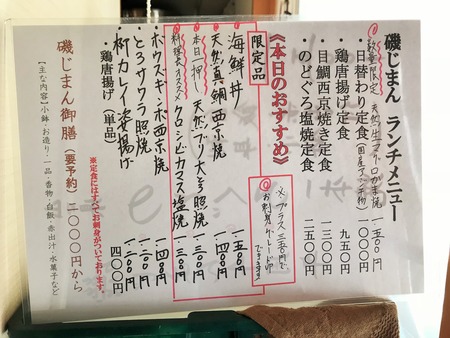 磯じまん ランチメニュー
①数量限定 天然生マグロかま焼 一五〇〇円
・日替わり定食(国産アジ干物) 一〇〇〇円
・鶏唐揚げ定食 九五〇円
・目鯛西京焼き定食 一三〇〇円
・のどぐろ塩焼定食 二五〇〇円
《本日のおすすめ》
※プラス三五〇円で
お刺身グレードUP
できます!!
限定品
・海鮮丼 一五〇〇円
・天然真鯛西京焼 一四〇〇円
本日一押 天然ブリ大トロ照焼 一三〇〇円
料理長オススメ クロシビカマス塩焼 一三〇〇円
・ホウズキンボ西京焼 一四〇〇円
・とろサワラ照焼 一三〇〇円
・柳カレイ姿揚げ 一二〇〇円
・鶏唐揚げ(単品) 四〇〇円
※定食にはすべてお刺身がついております。
磯じまん御膳(要予約)二〇〇〇円から
【主な内容】小鉢・お造り・一品・香物・白飯・赤出汁・水菓子など